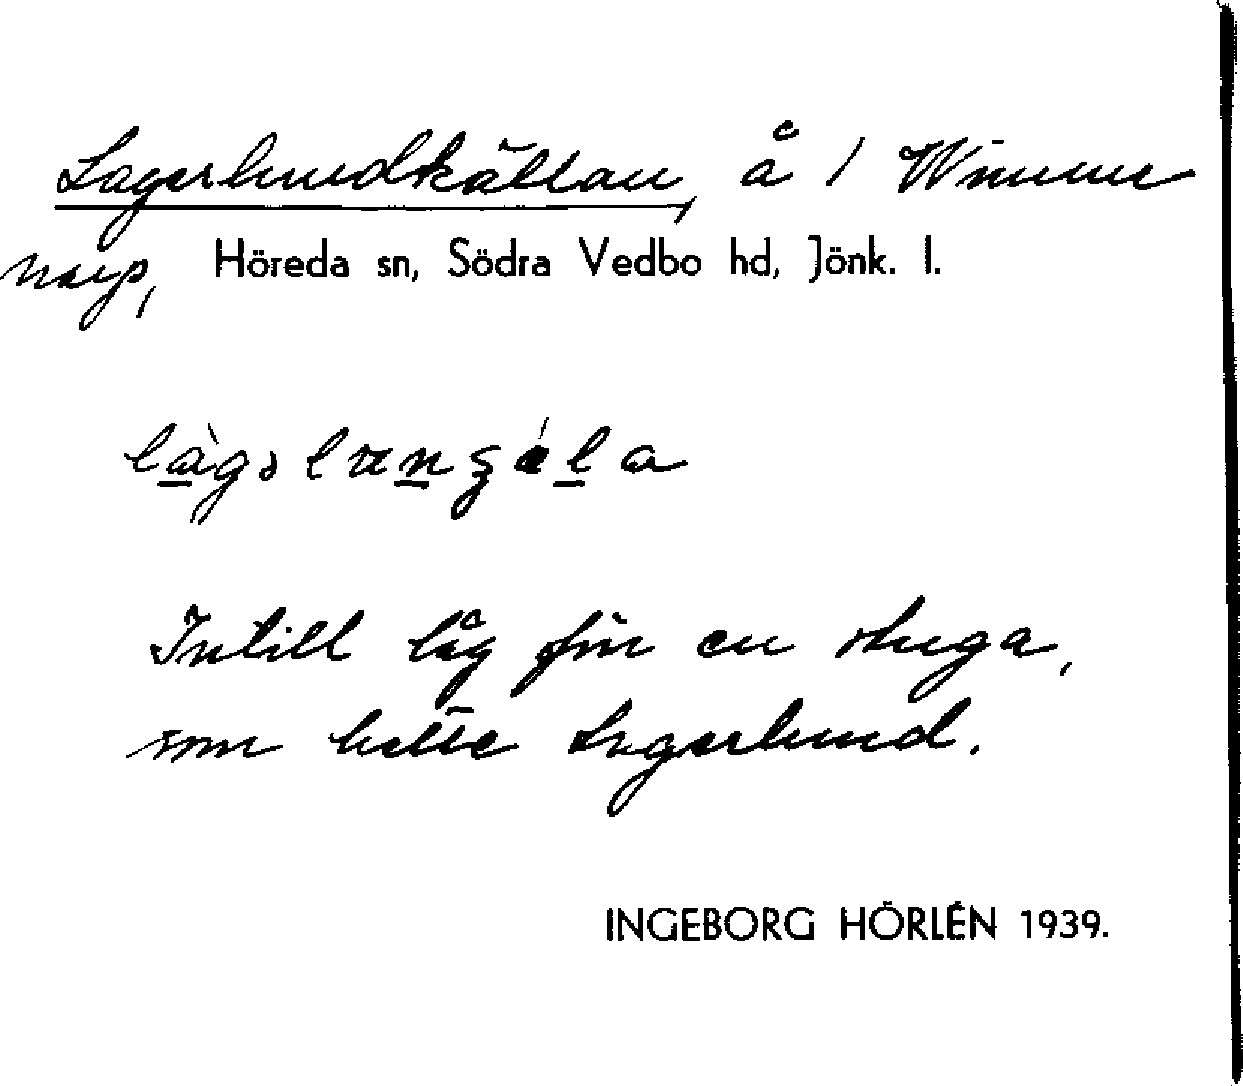 Lagerlundkällan, å 1 Wimme
narp, Höreda sn, Södra Vedbo hd, Jönk. l.
Intill låg förr en stuga,
som hette Lagerlund.
INGEBORG HÖRLÉN 1939.